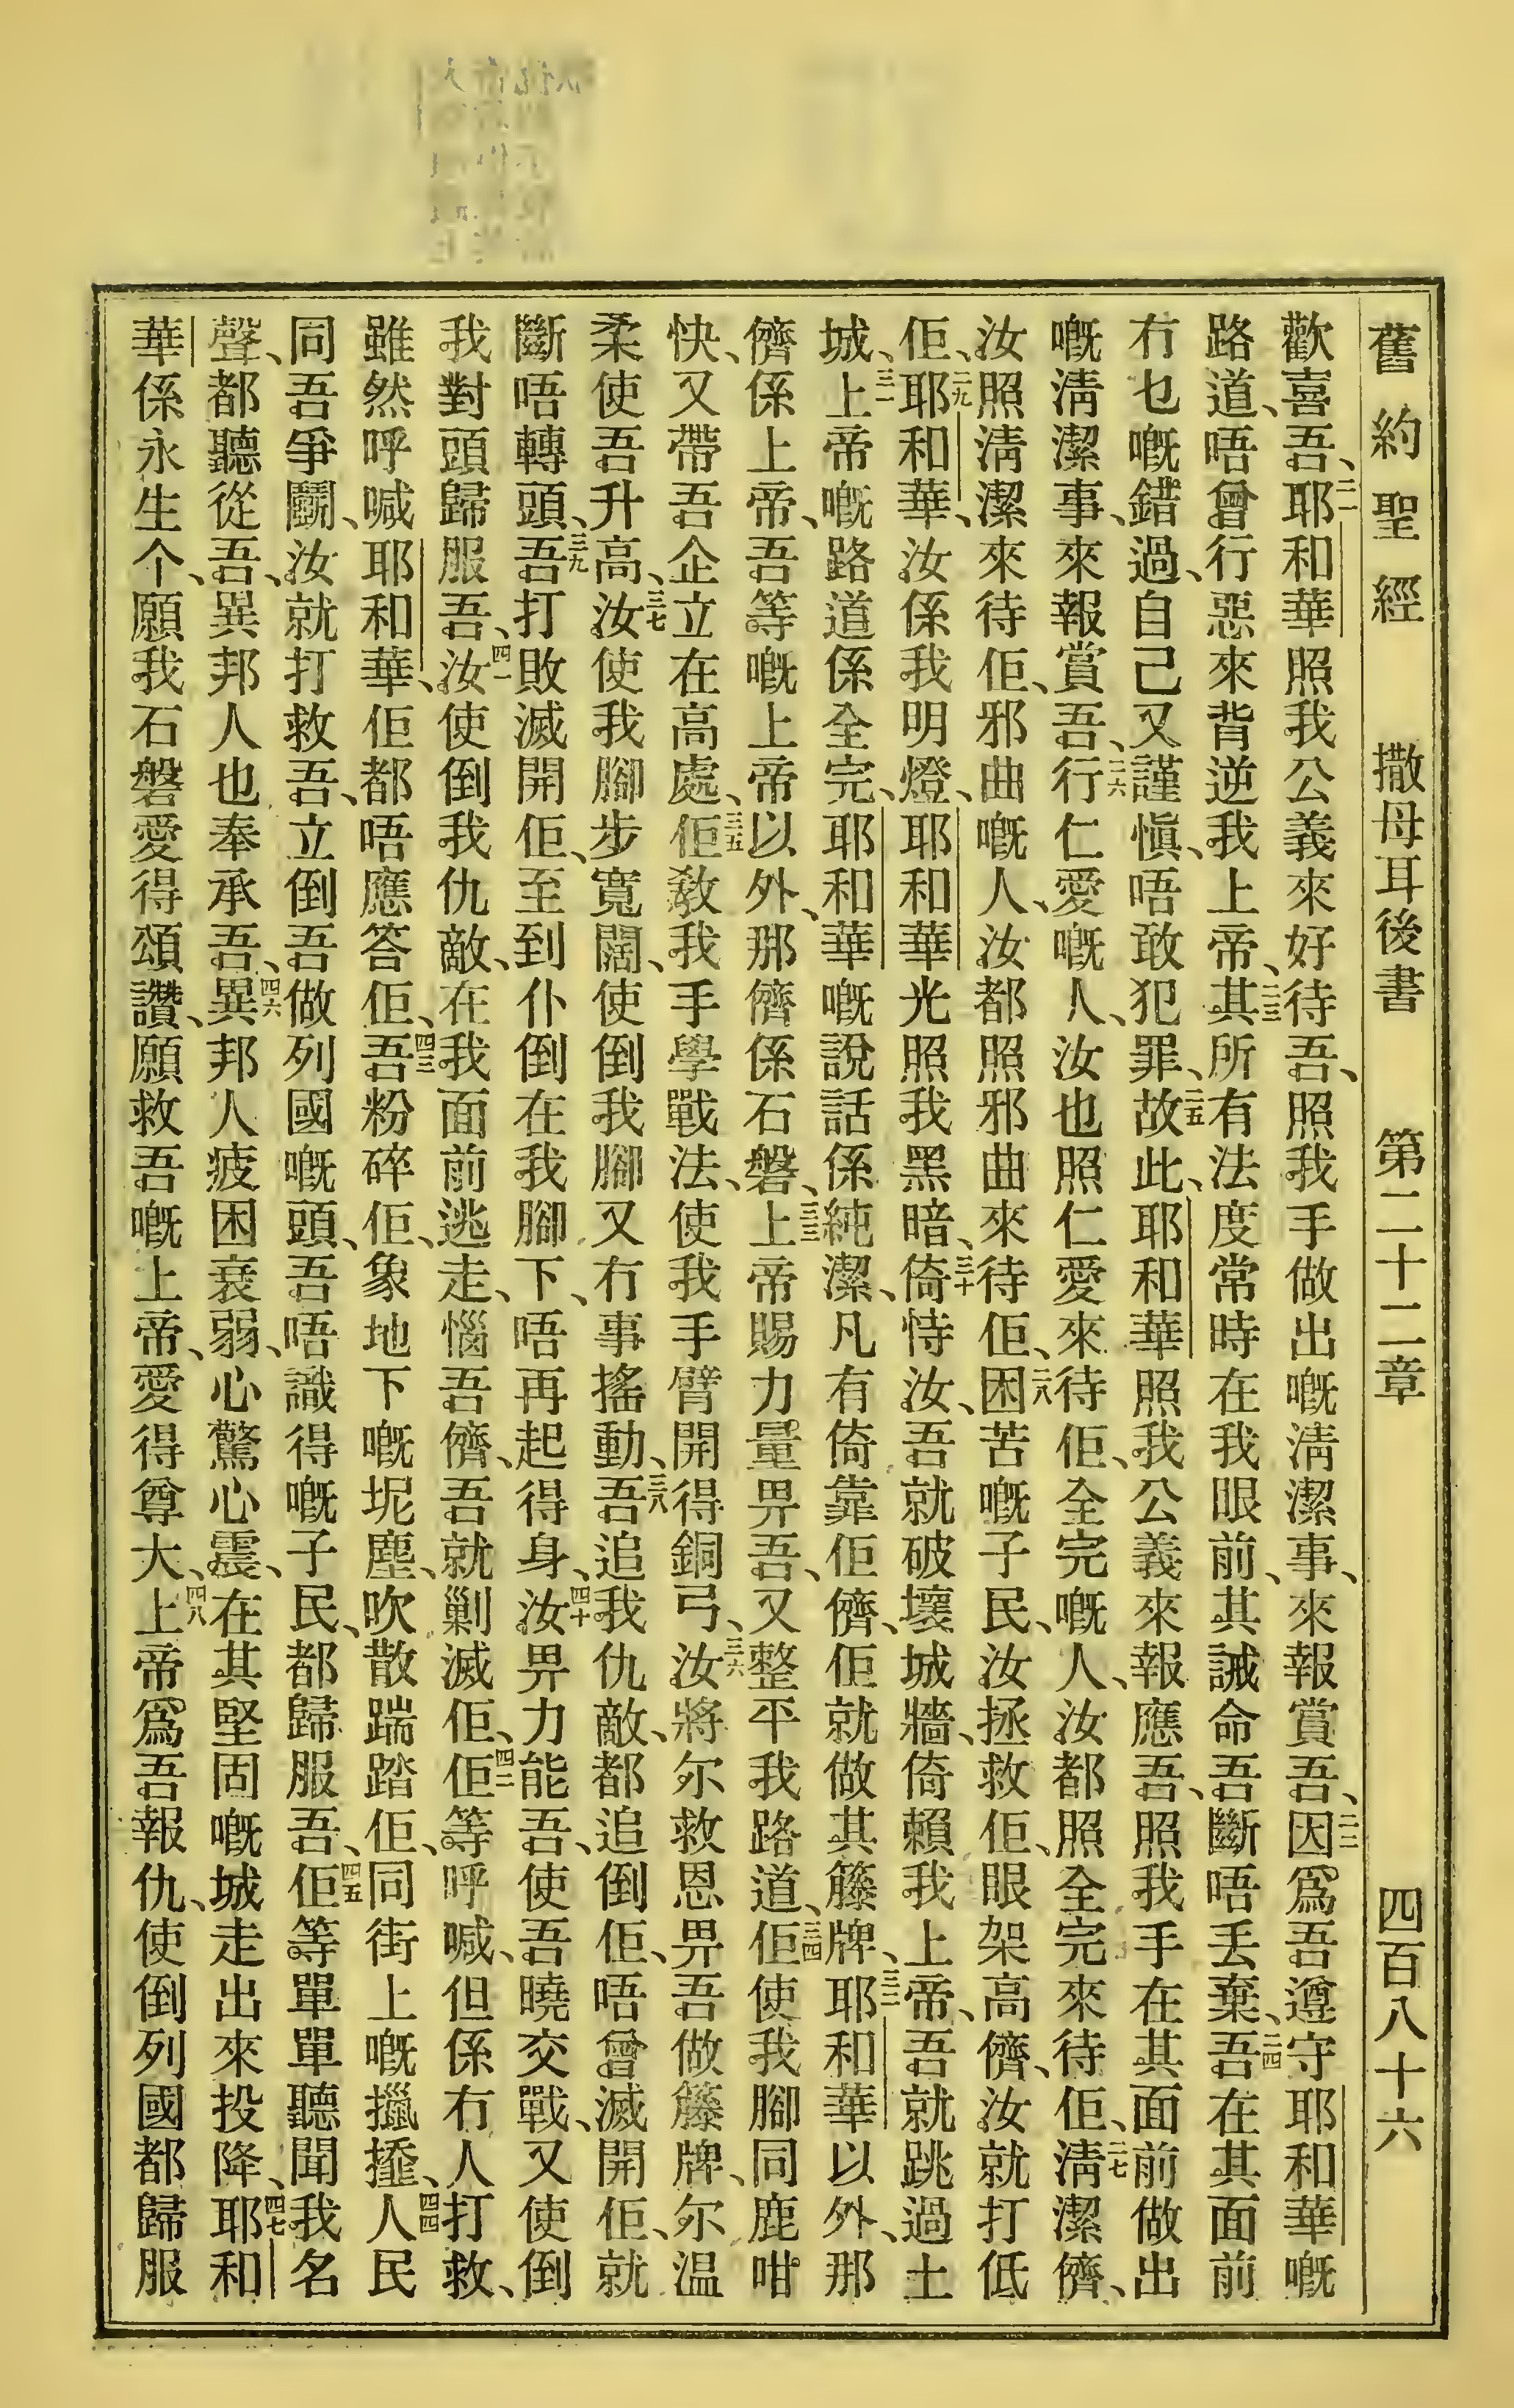 舊約聖經 撒母耳後書 第二十二章 四百八十六
歡喜吾、二一耶和華照我公義來好待吾、照我手做出嘅淸潔事、來報賞吾、二二因爲吾遵守耶和華嘅
路道、唔曾行惡來背逆我上帝、二三其所有法度常時在我眼前、其誡命吾斷唔丢棄、二四吾在其面前
冇乜嘅錯過、自己又謹愼、唔敢犯罪、二五故此、耶和華照我公義來報應吾、照我手在其面前做出
嘅淸潔事、來報賞吾、二六行仁愛嘅人、汝也照仁愛來待佢、全完嘅人、汝都照全完來待佢、二七淸潔儕、
汝照淸潔來待佢、邪曲嘅人、汝都照邪曲來待佢、二八困苦嘅子民、汝拯救佢、眼架高儕、汝就打低
佢、二九耶和華、汝係我明燈、耶和華光照我黑暗、三十倚恃汝、吾就破壞城牆、倚賴我上帝、吾就跳過土
城、三一上帝嘅路道係全完、耶和華嘅說話係純潔、凡有倚靠佢儕、佢就做其籐牌、三二耶和華以外、那
儕係上帝、吾等嘅上帝以外、那儕係石磐、三三上帝賜力量畀吾、又整平我路道、三四佢使我腳同鹿咁
快、又帶吾企立在高處、三五佢敎我手學戰法、使我手臂開得銅弓、三六汝將尔救恩畀吾做籐牌、尔温
柔使吾升高、三七汝使我腳步寬闊、使倒我腳又冇事搖動、三八吾追我仇敵、都追倒佢、唔曾滅開佢、就
斷唔轉頭、三九吾打敗滅開佢、至到仆倒在我腳下、唔再起得身、四十汝畀力能吾、使吾曉交戰、又使倒
我對頭歸服吾、四一汝使倒我仇敵、在我面前逃走、惱吾儕、吾就剿滅佢、四二佢等呼喊、但係冇人打救、
雖然呼喊耶和華、佢都唔應答佢、四三吾粉碎佢、象地下嘅坭塵、吹散踹踏佢、同街上嘅擸𢶍、四四人民
同吾爭鬭、汝就打救吾、立倒吾做列國嘅頭、吾唔識得嘅子民、都歸服吾、四五佢等單單聽聞我名
聲、都聽從吾、異邦人也奉承吾、四六異邦人疲困衰弱、心驚心震、在其堅固嘅城走出來投降、四七耶和
華係永生个、願我石磐愛得頌讚、願救吾嘅上帝、愛得尊大、四八上帝爲吾報仇、使倒列國都歸服